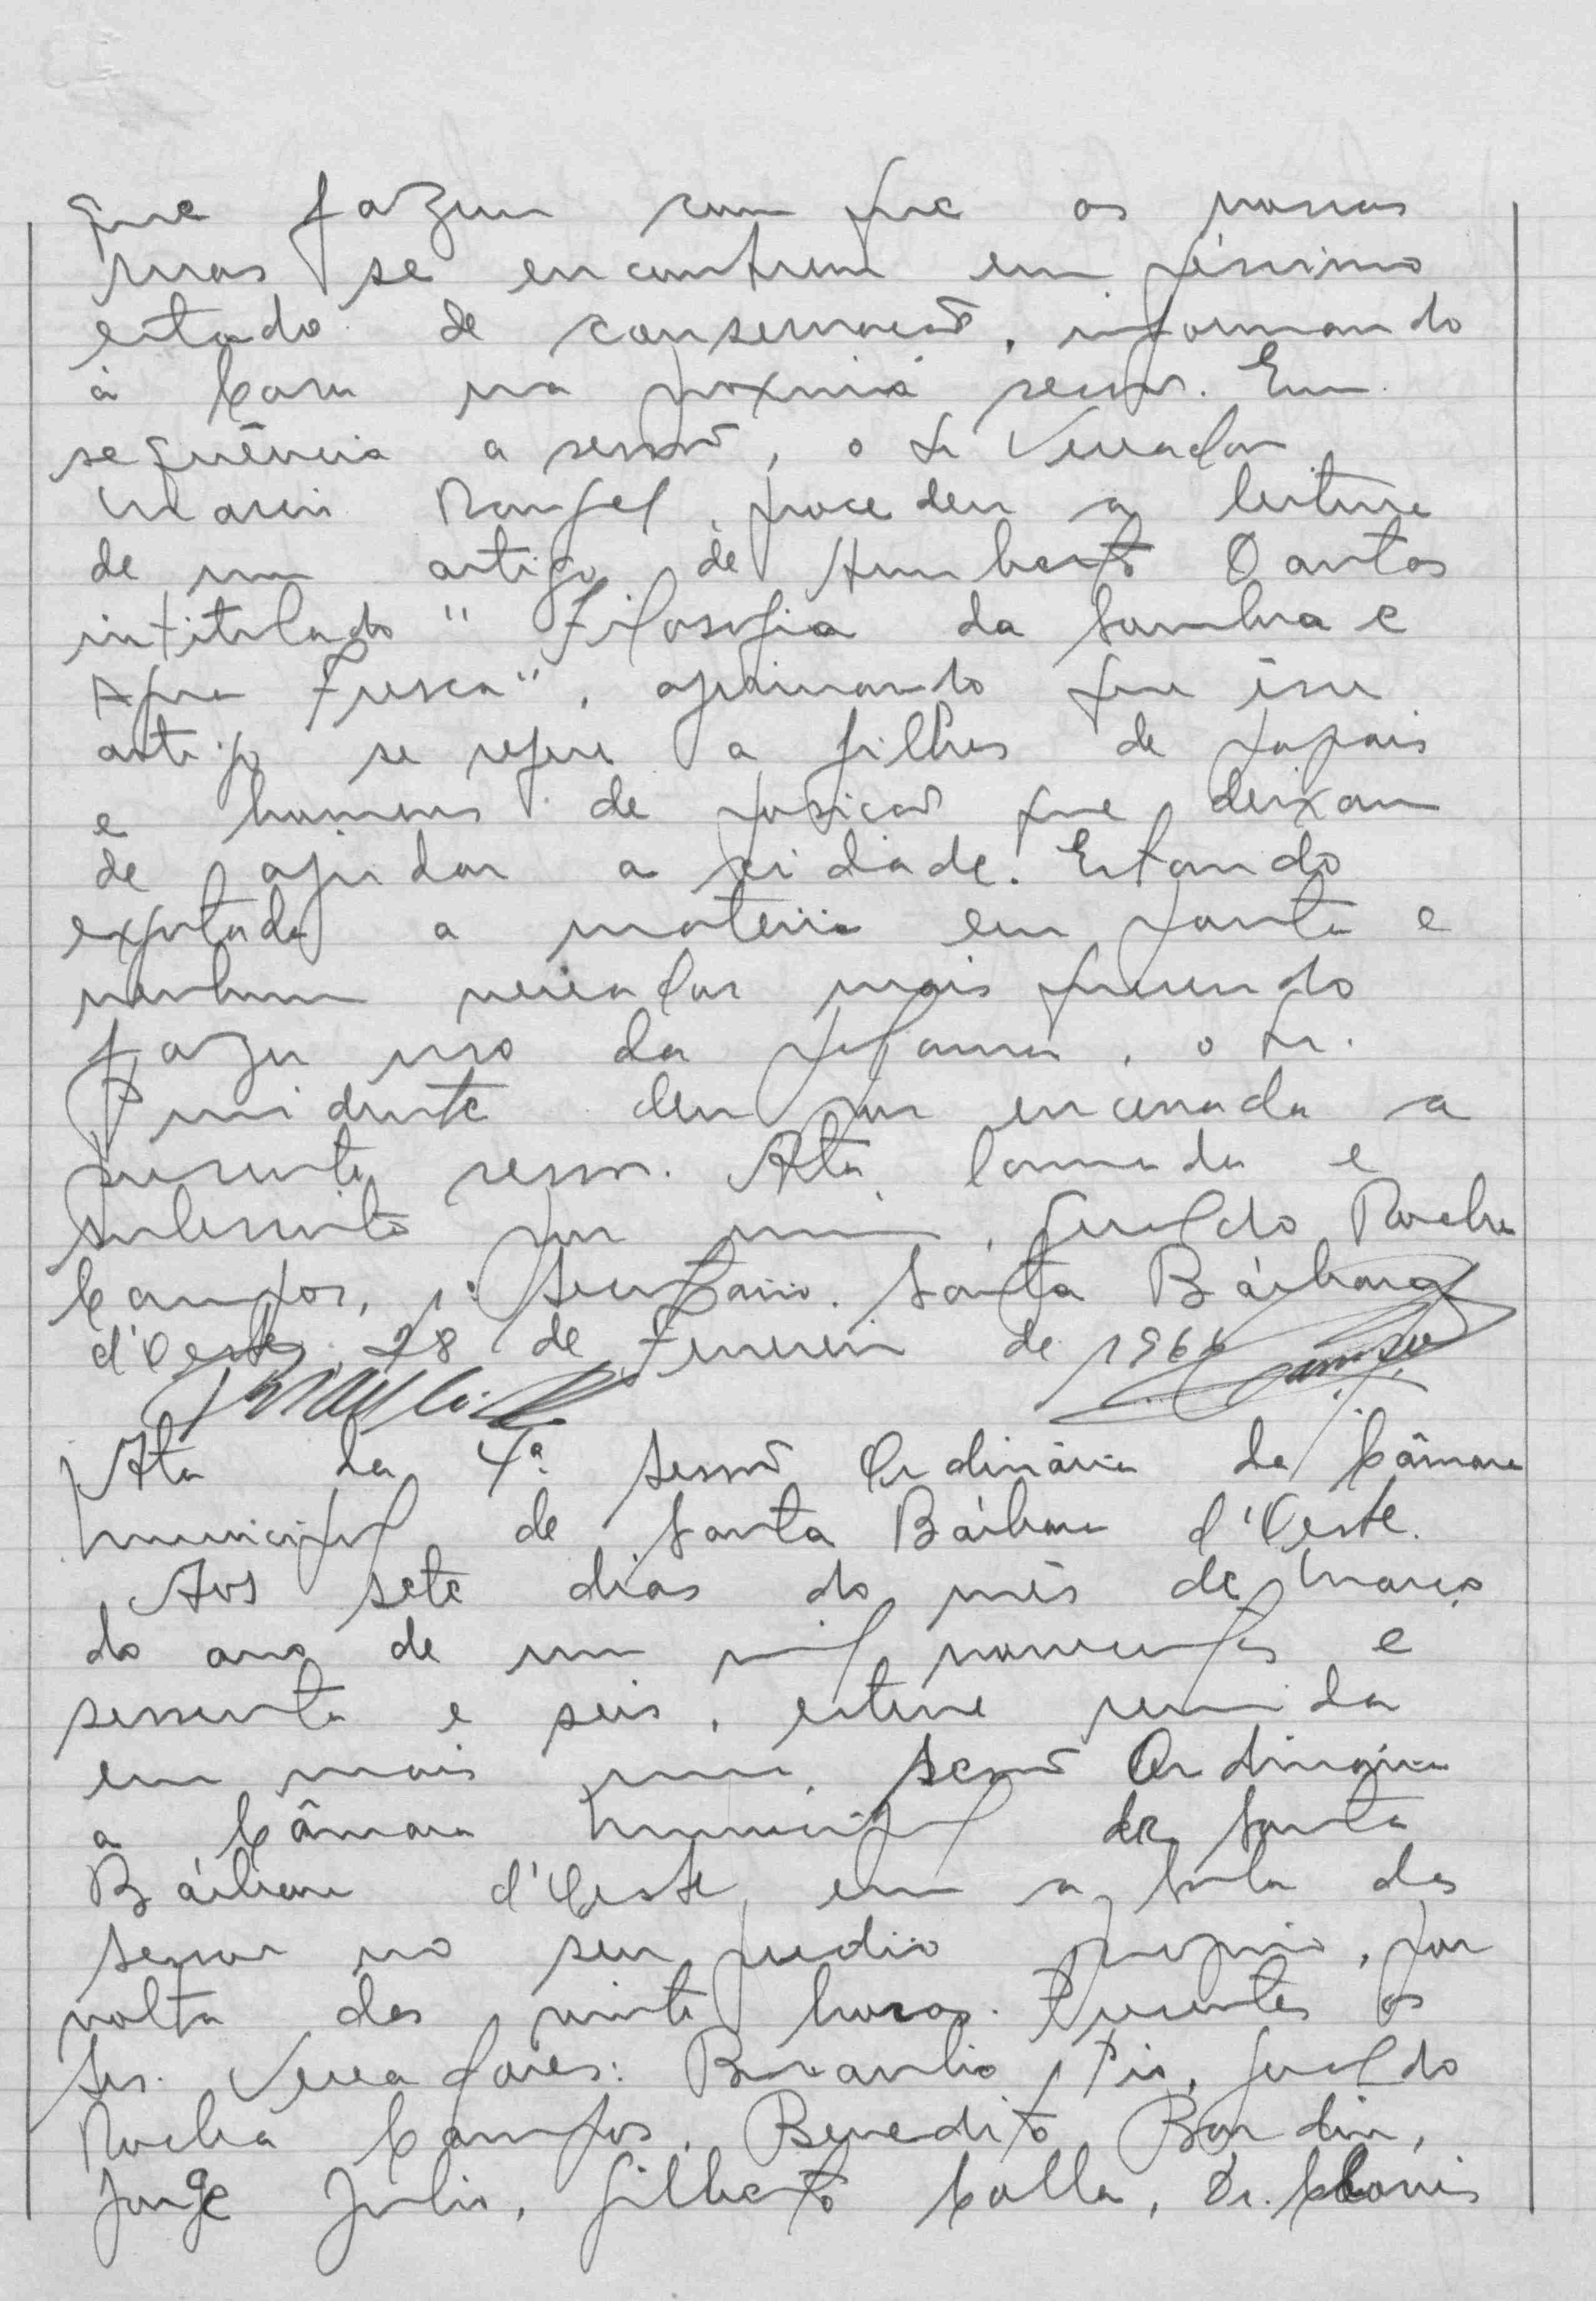 que fazem com que as nossas
ruas se encontrem em péssimo
estado de conservação, informando
à Casa na proxima sessão. Em
sequência a sessão, o Sr Vereador
Mario Rangel, procedeu a leitura
de um artigo de Humberto Dantas
intitulado "Filosofia da Sombra e
Agua Fresca", opinando que êsse
artigo se refere a filhos de papais
e homens de posição que deixam
de ajudar a cidade. Estando
esgotada a materia em pauta e
nenhum vereador mais querendo
fazer uso da palavra, o Sr.
Presidente deu por encerrada a
presente sessão. Ata lavrada e
subscrita por mim, Geraldo Rocha
Campos, 1º Secretario. Santa Bárbara
d'Oeste, 28 de Fevereiro de 1966
Ata da 4ª Sessão Ordinária da Câmara
Municipal de Santa Bárbara d'Oeste.
Aos sete dias do mês de Março
do ano de um mil novecentos e
sessenta e seis, esteve reunida
em mais uma Sessão Ordinária
a Câmara Municipal de Santa
Bárbara d'Oeste, em a Sala das
sessões no seu predio proprio, por
volta das vinte horas. Presentes os
Srs. Vereadores: Braulio Pio, Geraldo
Rocha Campos, Benedito Bordin,
Jorge Julio, Gilberto Calla, Dr. Clovis